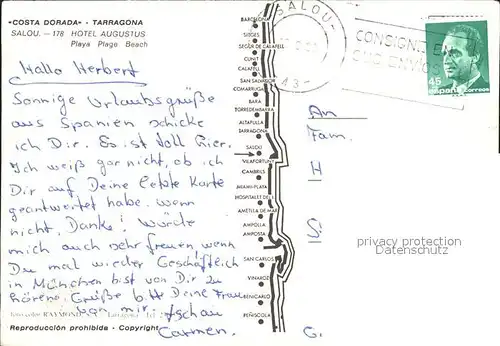 «COSTA DORADA» - TARRAGONA
SALOU. - 178 HOTEL AUGUSTUS
Playa Plage Beach
Hallo Herbert
Sonnige Urlaubsgrüße
aus Spanien schicke
ich Dir. Es ist toll hier.
Ich weiß gar nicht, ob ich
Dir auf Deine letzte Karte
geantwortet habe, wenn
nicht, Danke! Würde
mich auch sehr freuen, wenn
Du mal wieder Geschäftlich
in München bist von Dir zu
hören. Grüße bitte Deine Frau
von mir. Tschau
Carmen.
RAYMOND
Reproducción prohibida - Copyright
BARCELONA
SITGES
SEGUR DE CALAFELL
CUNIT
CALAFELL
SAN SALVADOR
COMARRUGA
BARA
TORREDEMBARRA
ALTAFULLA
TARRAGONA
SALOU
VILAFORTUNY
CAMBRILS
MIAMI-PLAYA
HOSPITALET DEL I.
AMETLLA DE MAR
AMPOLLA
AMPOSTA
SAN CARLOS
VINAROZ
BENICARLO
PEÑISCOLA
SALOU
CONSIGNE EN
SUS ENVIOS
45
españa correos
An
Fam.
H
S
G.
privacy protection
Veronika Reverzani